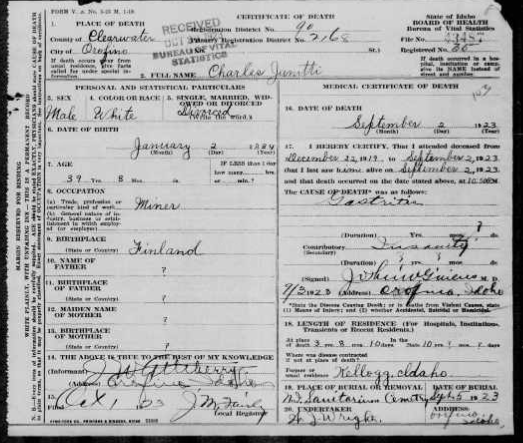 FORM V. S. No. 5-25 M. 1-19
CERTIFICATE OF DEATH
State of Idaho
BOARD OF HEALTH
Bureau of Vital Statistics
1. PLACE OF DEATH
County of Clearwater
City of Orofino
RECEIVED
BUREAU OF VITAL
STATISTICS
Registration District No. 90
Registration District No. 2168
File No.
Registered No.
If death occurs away from
usual residence, give facts
called for under special information.
If death occurred in a
hospital, institution or camp,
give its NAME instead of
street and number.
2. FULL NAME Charles Juntti
PERSONAL AND STATISTICAL PARTICULARS
MEDICAL CERTIFICATE OF DEATH
3. SEX
Male
4. COLOR OR RACE
White
5. SINGLE, MARRIED, WIDOWED OR DIVORCED
Divorced
6. DATE OF BIRTH
January 2 1884
(Month) (Day) (Year)
7. AGE
39 Yrs. 8 Mos.
8. OCCUPATION
(a) Trade, profession or
particular kind of work Miner
(b) General nature of industry, business or establishment in which employed (or employer)
9. BIRTHPLACE
(State or Country) Finland
10. NAME OF
FATHER ?
11. BIRTHPLACE OF
FATHER
(State or Country) ?
12. MAIDEN NAME
OF MOTHER ?
13. BIRTHPLACE OF
MOTHER
(State or Country) ?
14. THE ABOVE IS TRUE TO THE BEST OF MY KNOWLEDGE
(Informant)
(Address) Orofino Idaho
15. Filed Oct 1 23
Local Registrar
16. DATE OF DEATH
September 2 1923
(Month) (Day) (Year)
17. I HEREBY CERTIFY, That I attended deceased from
December 22, 1919, to September 2, 1923
that I last saw him alive on September 2, 1923
and that death occurred on the date stated above, at 10:50 P.M.
The CAUSE OF DEATH* was as follows:
Gastritis
(Duration) yrs. mos. ? ds.
Contributory Insanity
(Secondary)
(Duration) ? yrs. mos. ds.
(Signed) M.D.
9/3 1923 (Address) Orofino, Idaho
*State the Disease Causing Death; or in deaths from Violent Causes, state
(1) Means of Injury; and (2) whether Accidental, Suicidal or Homicidal.
18. LENGTH OF RESIDENCE (For Hospitals, Institutions,
Transients or Recent Residents.)
At place
of death 3 yrs. 8 mos. 10 days
Where was disease contracted
if not at place of death? ?
Former or
usual residence Kellogg, Idaho
19. PLACE OF BURIAL OR REMOVAL
Sanitarium Cemetery
DATE OF BURIAL
Sept 5 1923
20. UNDERTAKER
A. J. Wright
ADDRESS
Orofino
Idaho
MARGIN RESERVED FOR BINDING
WRITE PLAINLY, WITH UNFADING INK—THIS IS A PERMANENT RECORD